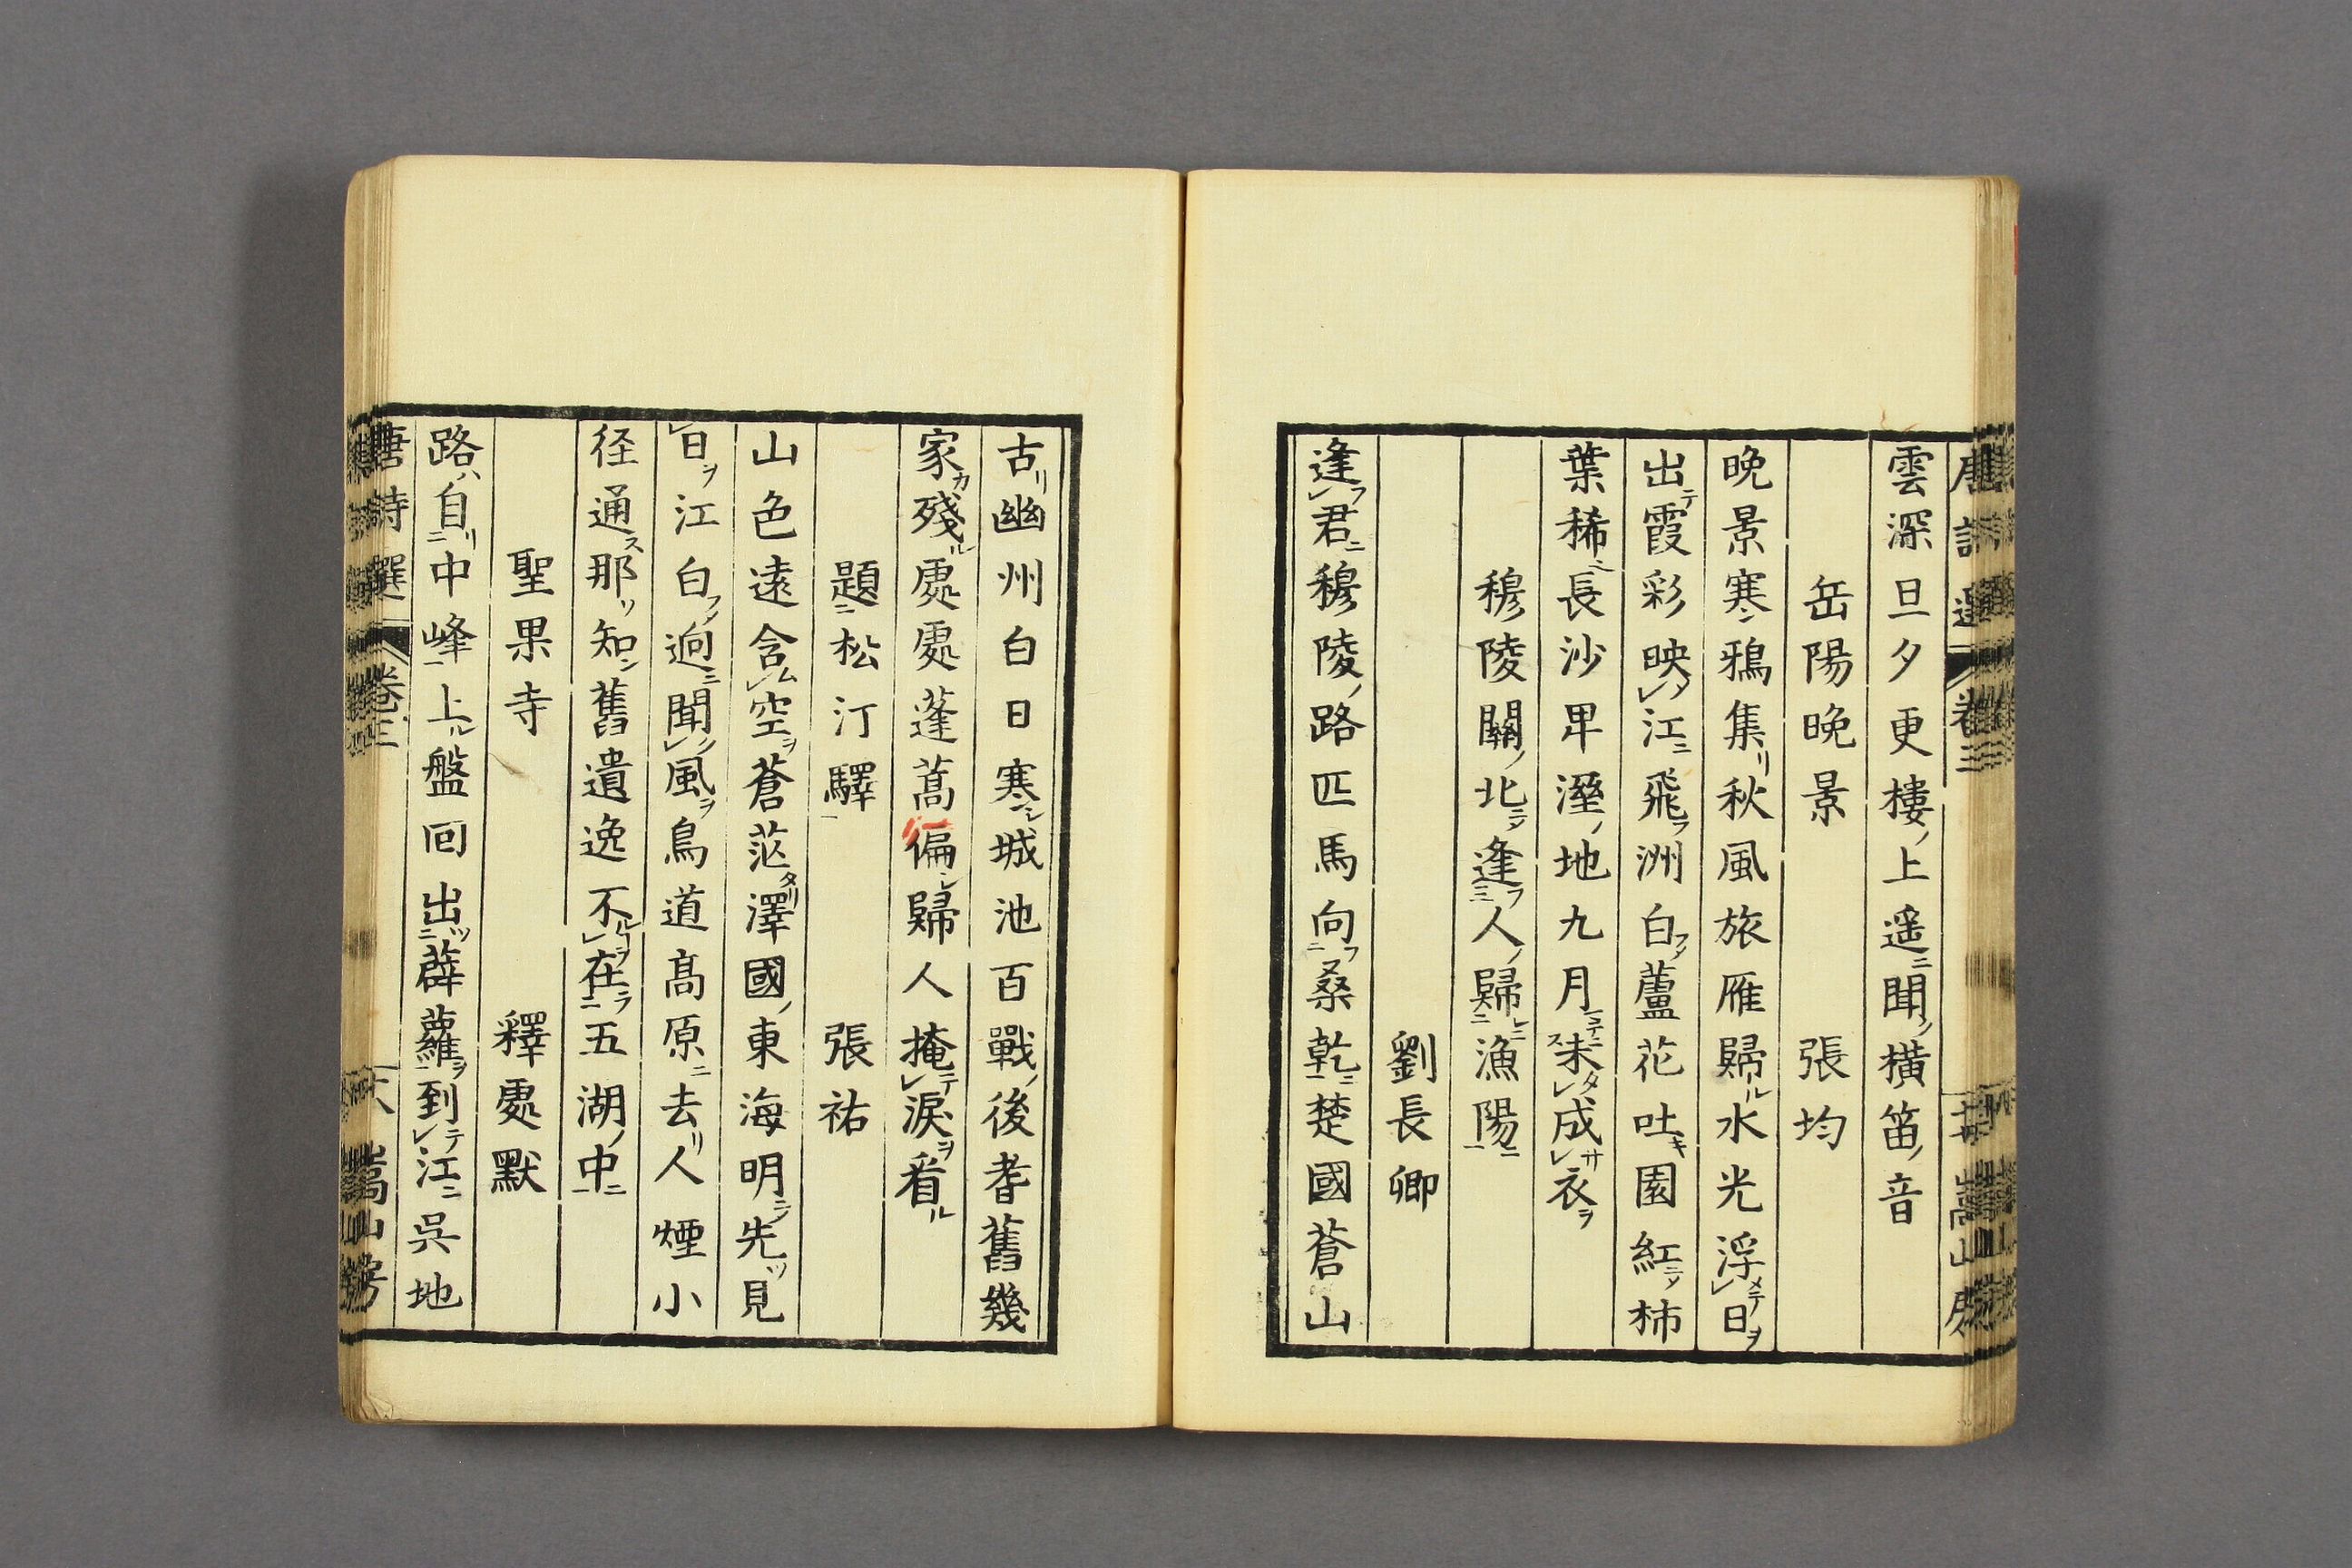 唐詩選 卷三 嵩山房
雲深旦夕更樓上遥聞横笛音
岳陽晩景 張均
晩景寒鴉集秋風旅雁歸水光浮日
出霞彩映江飛洲白蘆花吐園紅柿
葉稀長沙卑溼地九月未成衣
穆陵關北逢人歸漁陽
劉長卿
逢君穆陵路匹馬向桑乾楚國蒼山
古幽州白日寒城池百戰後耆舊幾
家殘處處蓬蒿偏歸人掩淚看
題松汀驛 張祐
山色遠含空蒼茫澤國東海明先見
日江白逈聞風鳥道高原去人煙小
径通那知舊遺逸不在五湖中
聖果寺 釋處默
路自中峰上盤回出薜蘿到江吳地
唐詩選 卷三 嵩山房